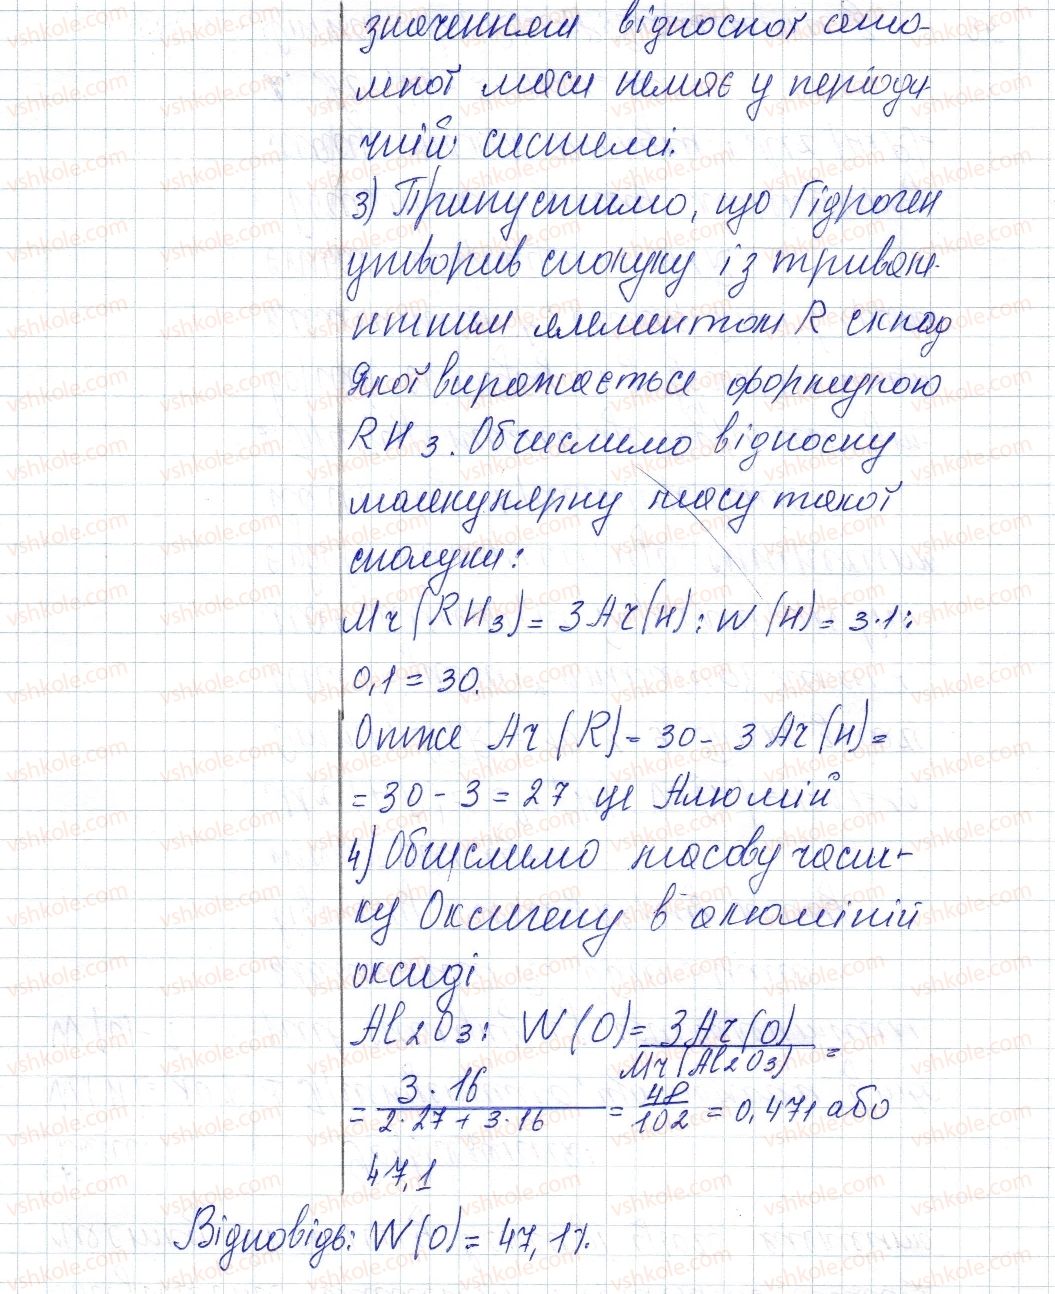 значенням відносної ато-
мної маси немає у періоди
чній системі.
3) Припустимо, що Гідроген
утворив сполуку із тривале-
нтним елементом R склад
якої виражається формулою
RH3. Обчислимо відносну
молекулярну масу такої
сполуки:
Mr(RH3) = 3Ar(H) : W(H) = 3·1 :
0,1 = 30.
Отже Ar(R) = 30 - 3Ar(H) =
= 30 - 3 = 27 це Алюміній
4) Обчислимо масову част-
ку Оксигену в алюміній
оксиді
Al2O3: W(O) = 3Ar(O) / Mr(Al2O3) =
= 3·16 / 2·27 + 3·16 = 48 / 102 = 0,471 або
47,1
Відповідь: W(O) = 47,1%.